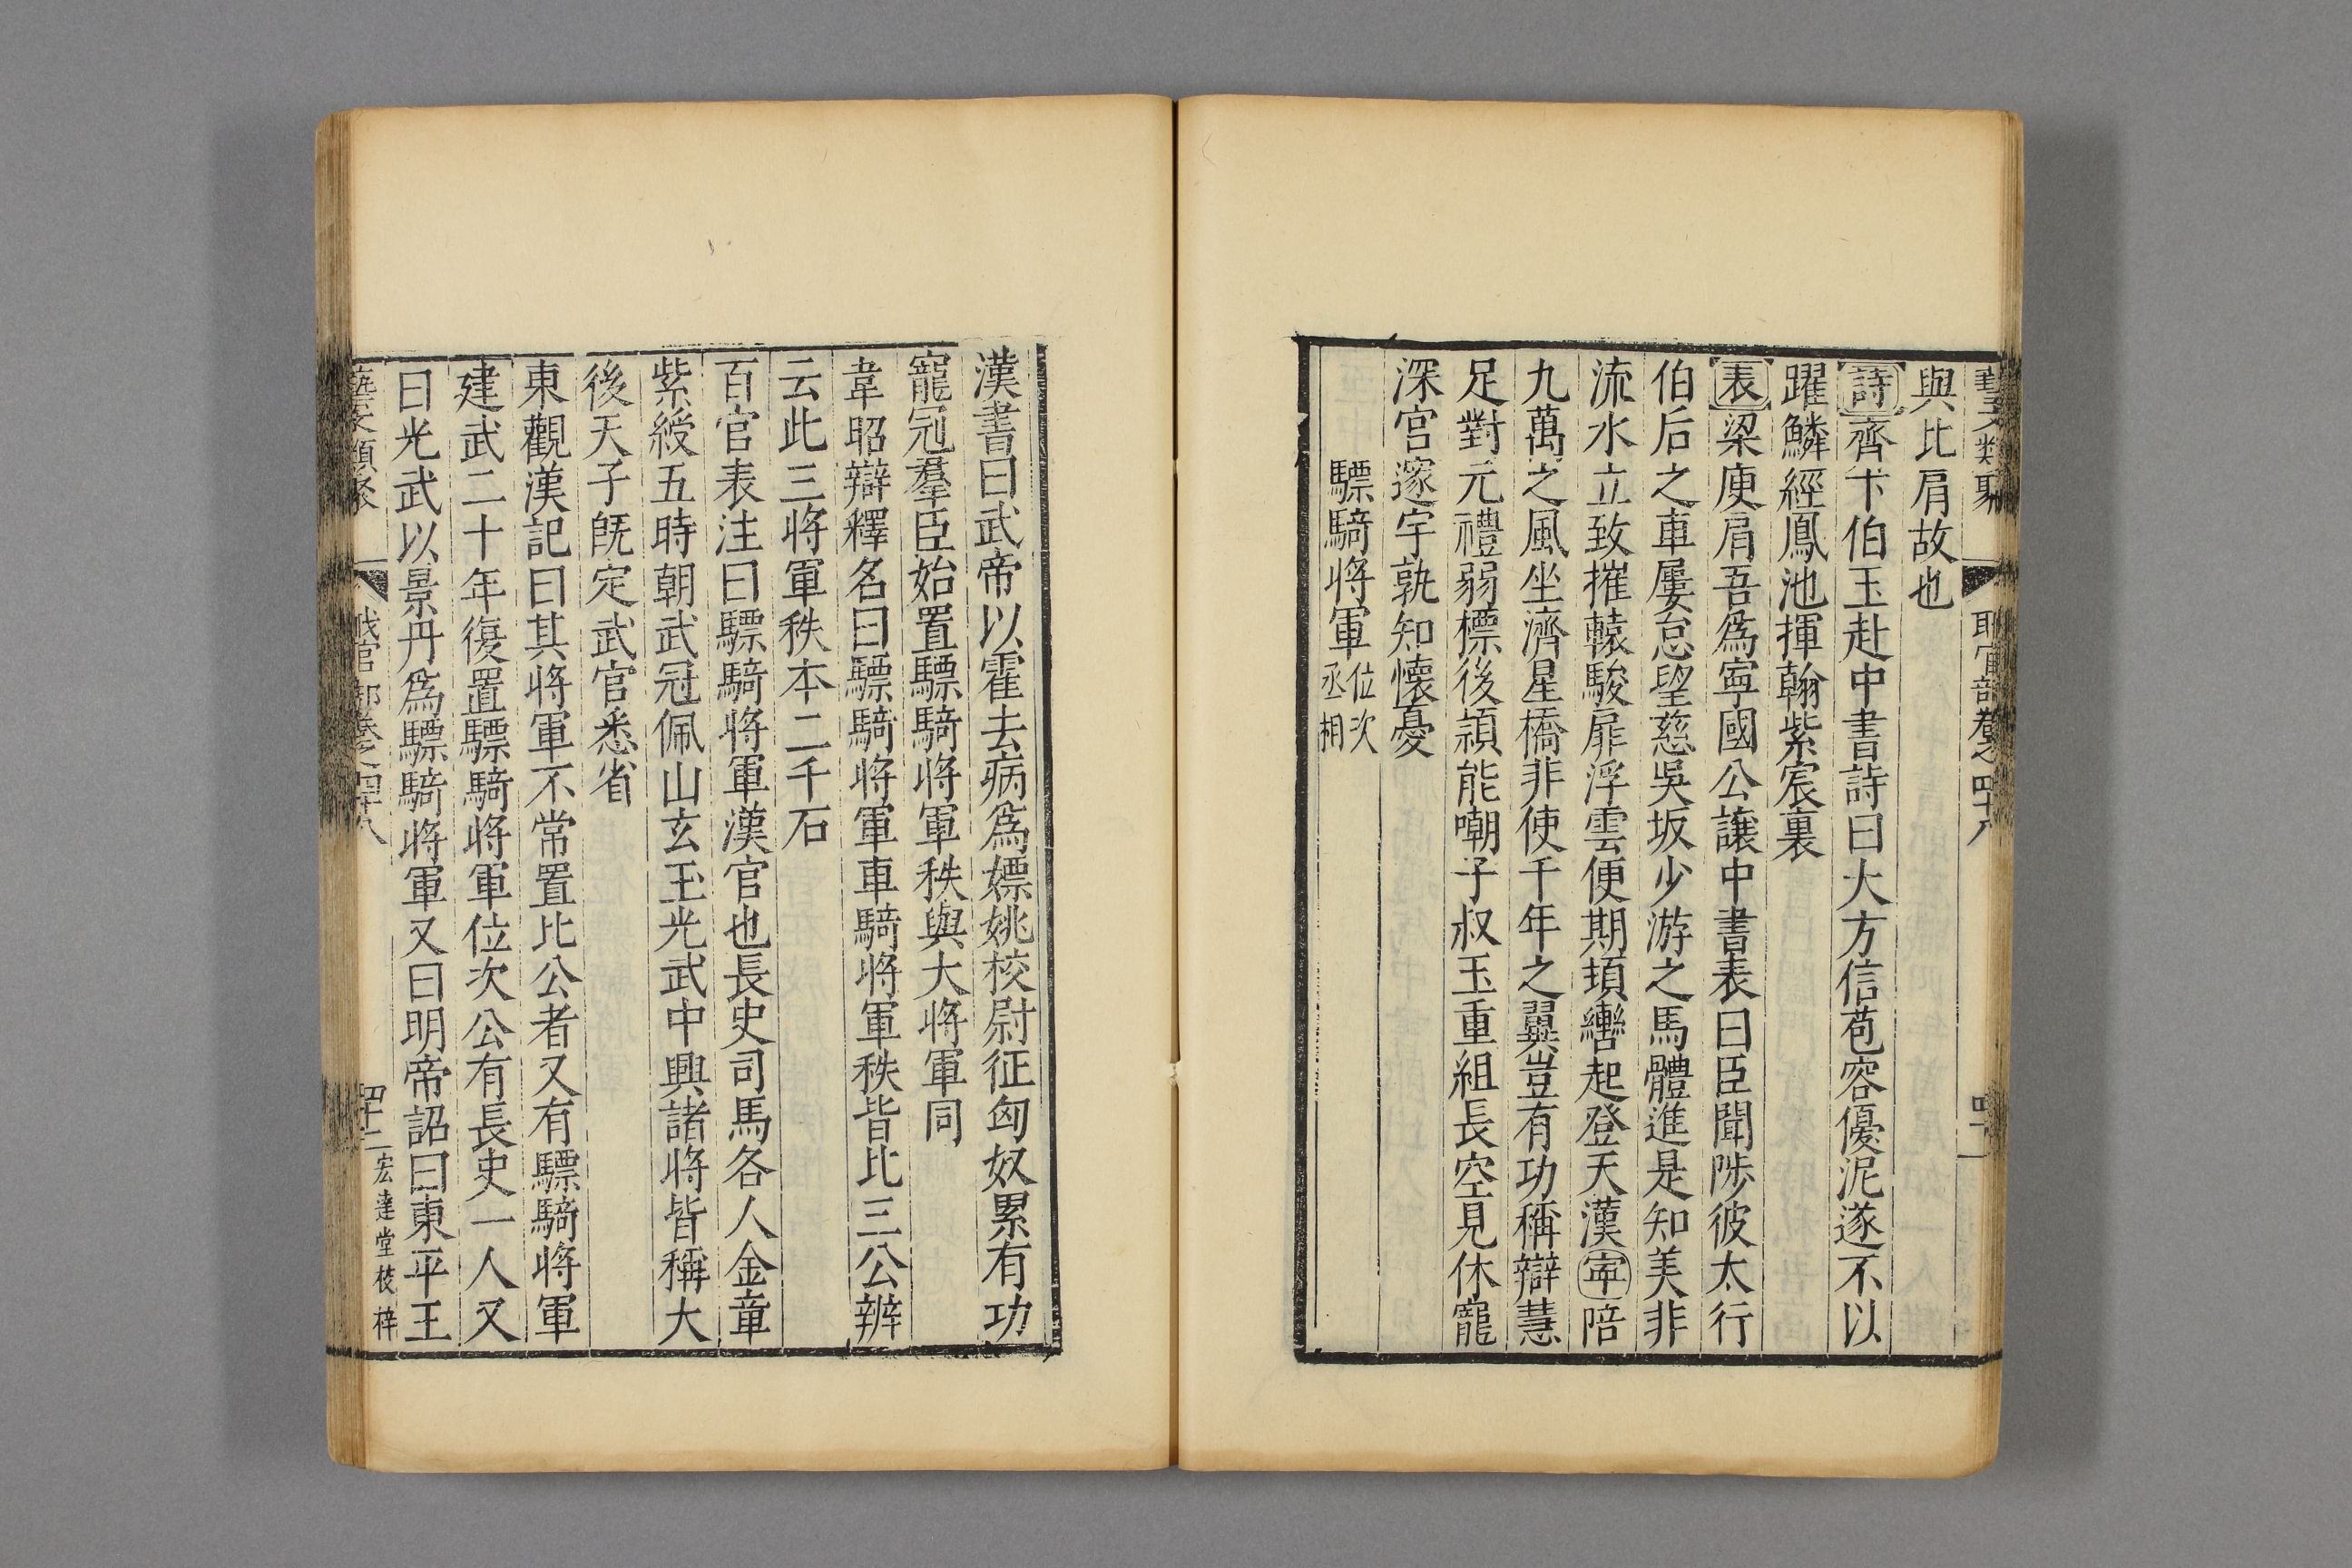 藝文類聚 職官部卷之四十八 四十一
與比肩故也
詩齊卞伯玉赴中書詩曰大方信苞容優泥遂不以
躍鱗經鳳池揮翰紫宸裏
表梁庾肩吾爲寧國公讓中書表曰臣聞陟彼太行
伯后之車屢怠望慈吳坂少游之馬體進是知美非
流水立致摧轅駿扉浮雲便期頓轡起登天漢寧陪
九萬之風坐濟星橋非使千年之翼豈有功稱辯慧
足對元禮弱標後頴能嘲子叔玉重組長空見休寵
深宫邃宇孰知懷憂
驃騎將軍位次丞相
漢書曰武帝以霍去病爲嫖姚校尉征匈奴累有功
寵冠羣臣始置驃騎將軍秩與大將軍同
韋昭辯釋名曰驃騎將軍車騎將軍秩皆比三公辨
云此三將軍秩本二千石
百官表注曰驃騎將軍漢官也長史司馬各人金章
紫綬五時朝武冠佩山玄玉光武中興諸將皆稱大
後天子旣定武官悉省
東觀漢記曰其將軍不常置比公者又有驃騎將軍
建武二十年復置驃騎將軍位次公有長史一人又
曰光武以景丹爲驃騎將軍又曰明帝詔曰東平王
藝文類聚 職官部卷之四十八 四十二 宏達堂校梓